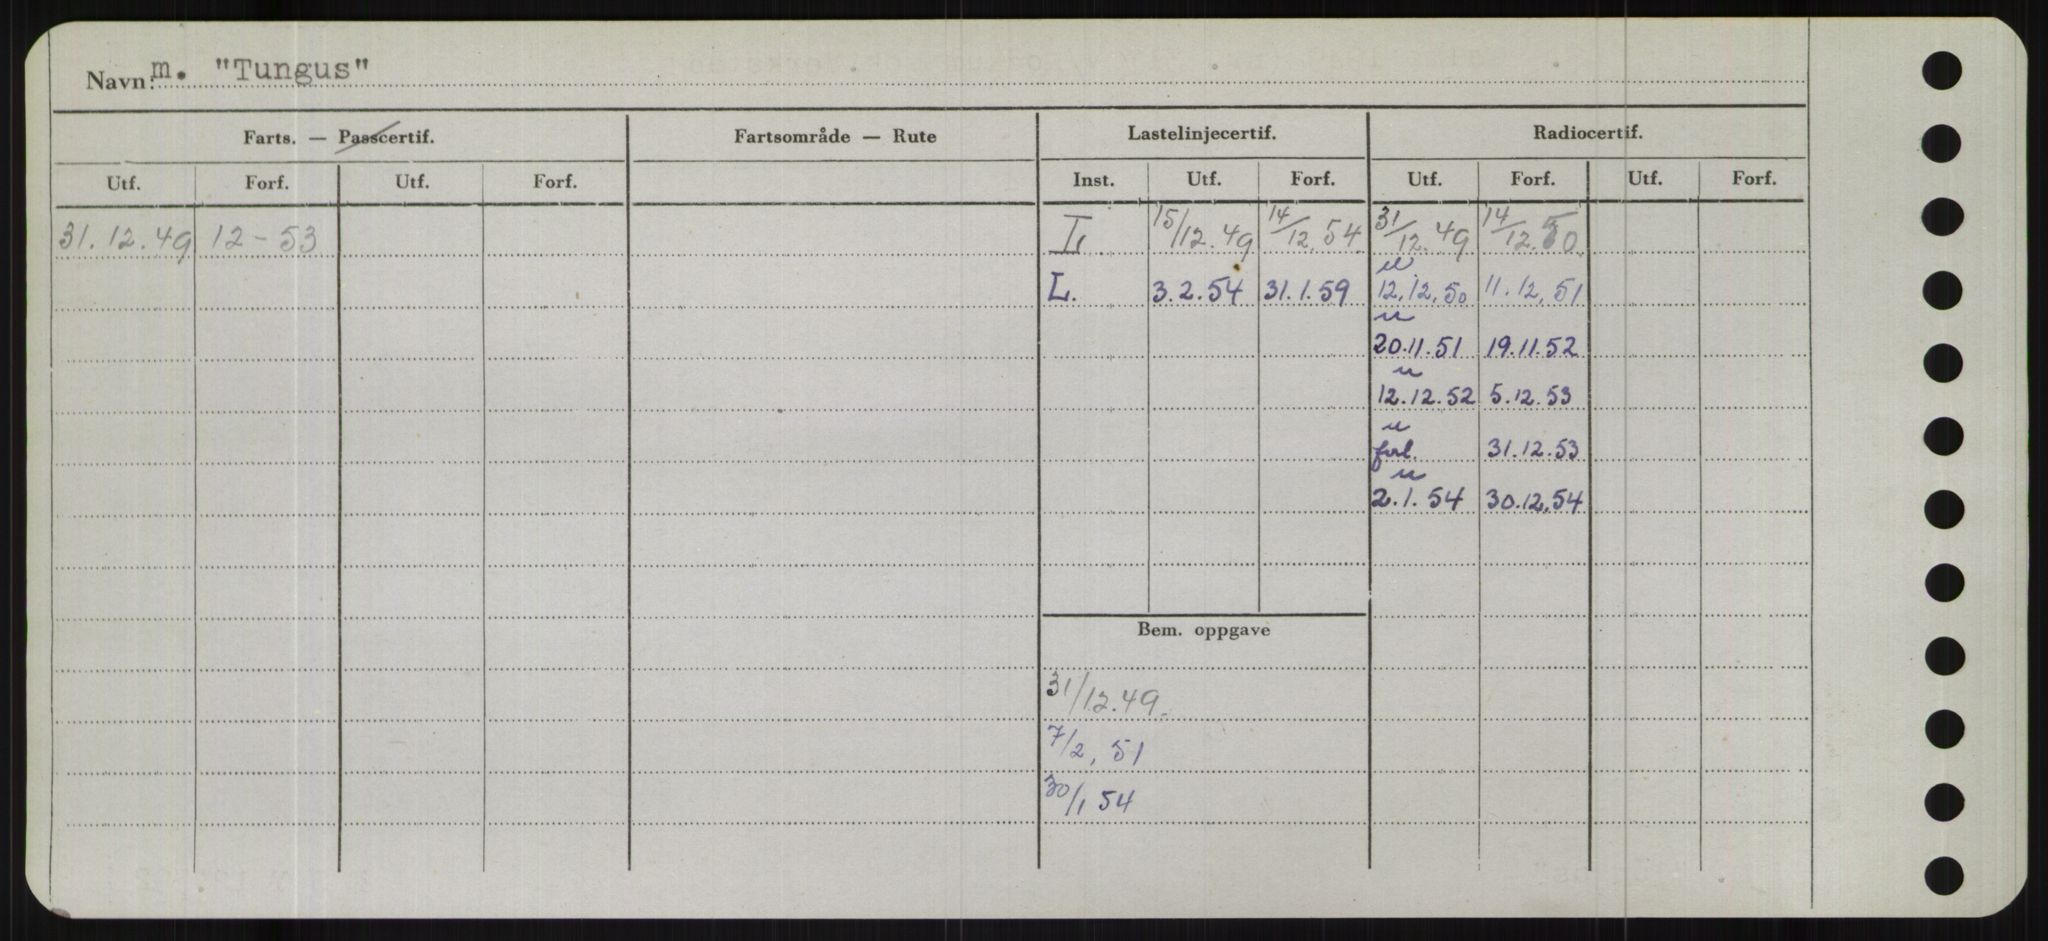 Navn: m. "Tungus"
Farts. — Passcertif. Fartsområde — Rute Lastelinjecertif. Radiocertif.
Utf. Forf. Utf. Forf. Inst. Utf. Forf. Utf. Forf. Utf. Forf.
31.12.49 12-53 L 15/12.49 14/12.54 31/12.49 14/12.50
L. 3.2.54 31.1.59 12.12.50 11.12.51
20.11.51 19.11.52
12.12.52 5.12.53
forl. 31.12.53
2.1.54 30.12.54
Bem. oppgave
31/12.49.
7/2, 51
30/1 54